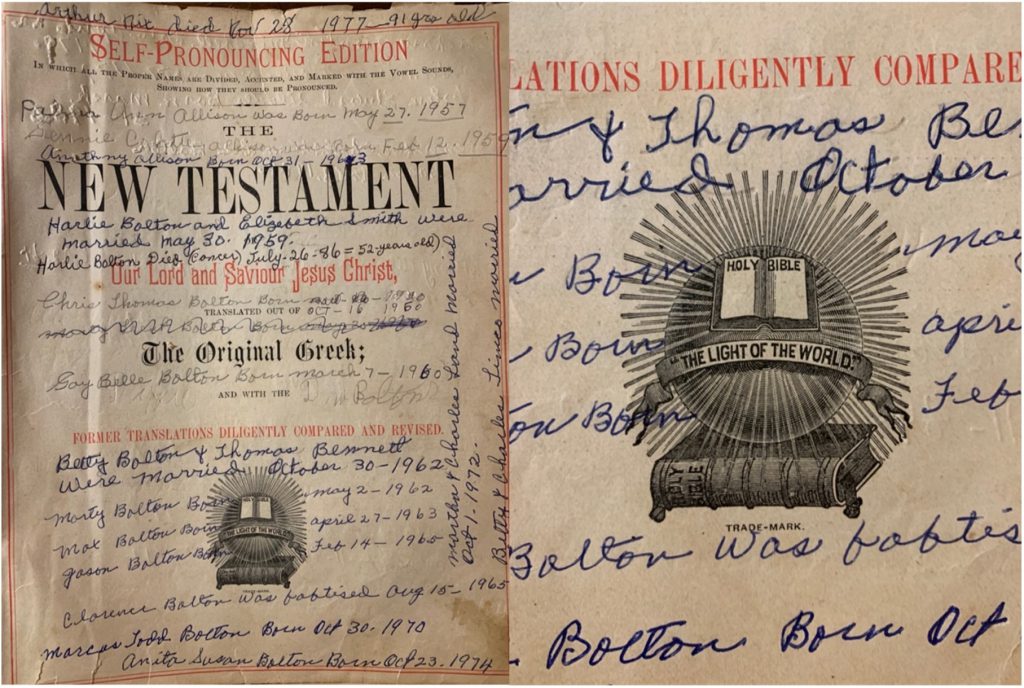 Arthur Nix Died Nov 28 1977 - 91 yrs old
SELF-PRONOUNCING EDITION
IN WHICH ALL THE PROPER NAMES ARE DIVIDED, ACCENTED, AND MARKED WITH THE VOWEL SOUNDS,
SHOWING HOW THEY SHOULD BE PRONOUNCED.
Ann Allison was Born May 27. 1957
THE
Born Feb 12. 1959
Anothny Allison Born Oct 31 - 1963
NEW TESTAMENT
Harlie Bolton and Elizabeth Smith were
married May 30. 1959.
Harlie Bolton Died (Cancer) July-26-86 = 52-years old)
Our Lord and Saviour Jesus Christ,
Chris Thomas Bolton Born
TRANSLATED OUT OF
OCT - 16 1960
The Original Greek;
Gay Belle Bolton Born march 7 - 1960
AND WITH THE
Bolton
FORMER TRANSLATIONS DILIGENTLY COMPARED AND REVISED.
Betty Bolton & Thomas Bennett
Were Married October 30-1962
Marty Bolton Born may 2 - 1962
Max Bolton Born april 27-1963
Jason Bolton Born Feb 14 - 1965
HOLY BIBLE
"THE LIGHT OF THE WORLD."
HOLY BIBLE
TRADE-MARK.
Clarence Bolton Was baptised Aug 15 - 1965
Marcus Todd Bolton Born Oct 30. 1970
Anita Susan Bolton Born Oct 23. 1974
martha & Charles Land Married
Oct 1. 1972.
Betty & Charles Simco married
LATIONS DILIGENTLY COMPARE
n & Thomas Be
arried October
Born may
HOLY BIBLE
Born apri
"THE LIGHT OF THE WORLD."
on Born Feb
HOLY BIBLE
TRADE-MARK.
Bolton Was baptis
Bolton Born Oct